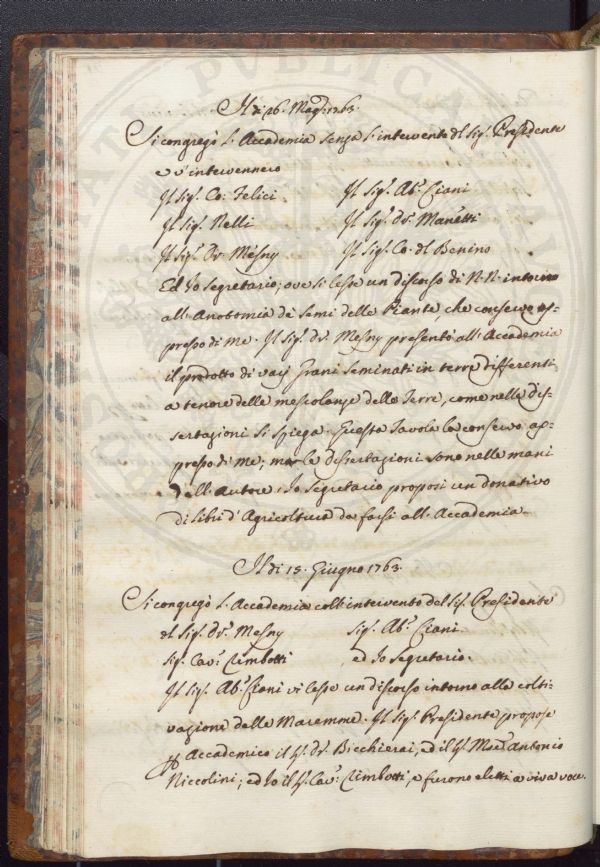 Il dì 26. Magg: 1763.
Si congregò l'Accademia senza l'intervento del Sig.r Presidente
e v'intervennero
Il Sig.r Co: Felici Il Sig.r Ab.e Ciani
Il Sig.r Nelli Il Sig.r D.r Manetti
Il Sig.r D.r Mesny Il Sig.r Co. del Benino
Ed Io Segretario; ove si lesse un discorso di N.N. intorno
all'Anotomia de Semi delle Piante che conservo ap=
presso di me. Il Sig.r D.r Mesny presentò all'Accademia
il prodotto di varj Grani seminati in terre differenti
a tenore delle mescolanze delle Terre, come nelle dis=
sertazioni si spiega. Questa Tavola la conservo ap=
presso di me; ma le dissertazioni sono nelle mani
dell'Autore. Io Segretario proposi un donativo
di libri d'Agricoltura da farsi all'Accademia
Il dì 15. Giugno 1763.
Si congregò l'Accademia coll'intervento del Sig.r Presidente
del Sig.r D.r Mesny Sig.r Ab.e Ciani
Sig.r Cav.r Zimbotti, ed Io Segretario.
Il Sig.r Ab.e Ciani vi lesse un discorso intorno alla colti=
vazione delle Maremme. Il Sig.r Presidente propose
Accademico il S.r D.r Bicchierai, ed il S.r Antonio
Niccolini; ed Io il S.r Cav.r Zimbotti, e furono eletti a viva voce.